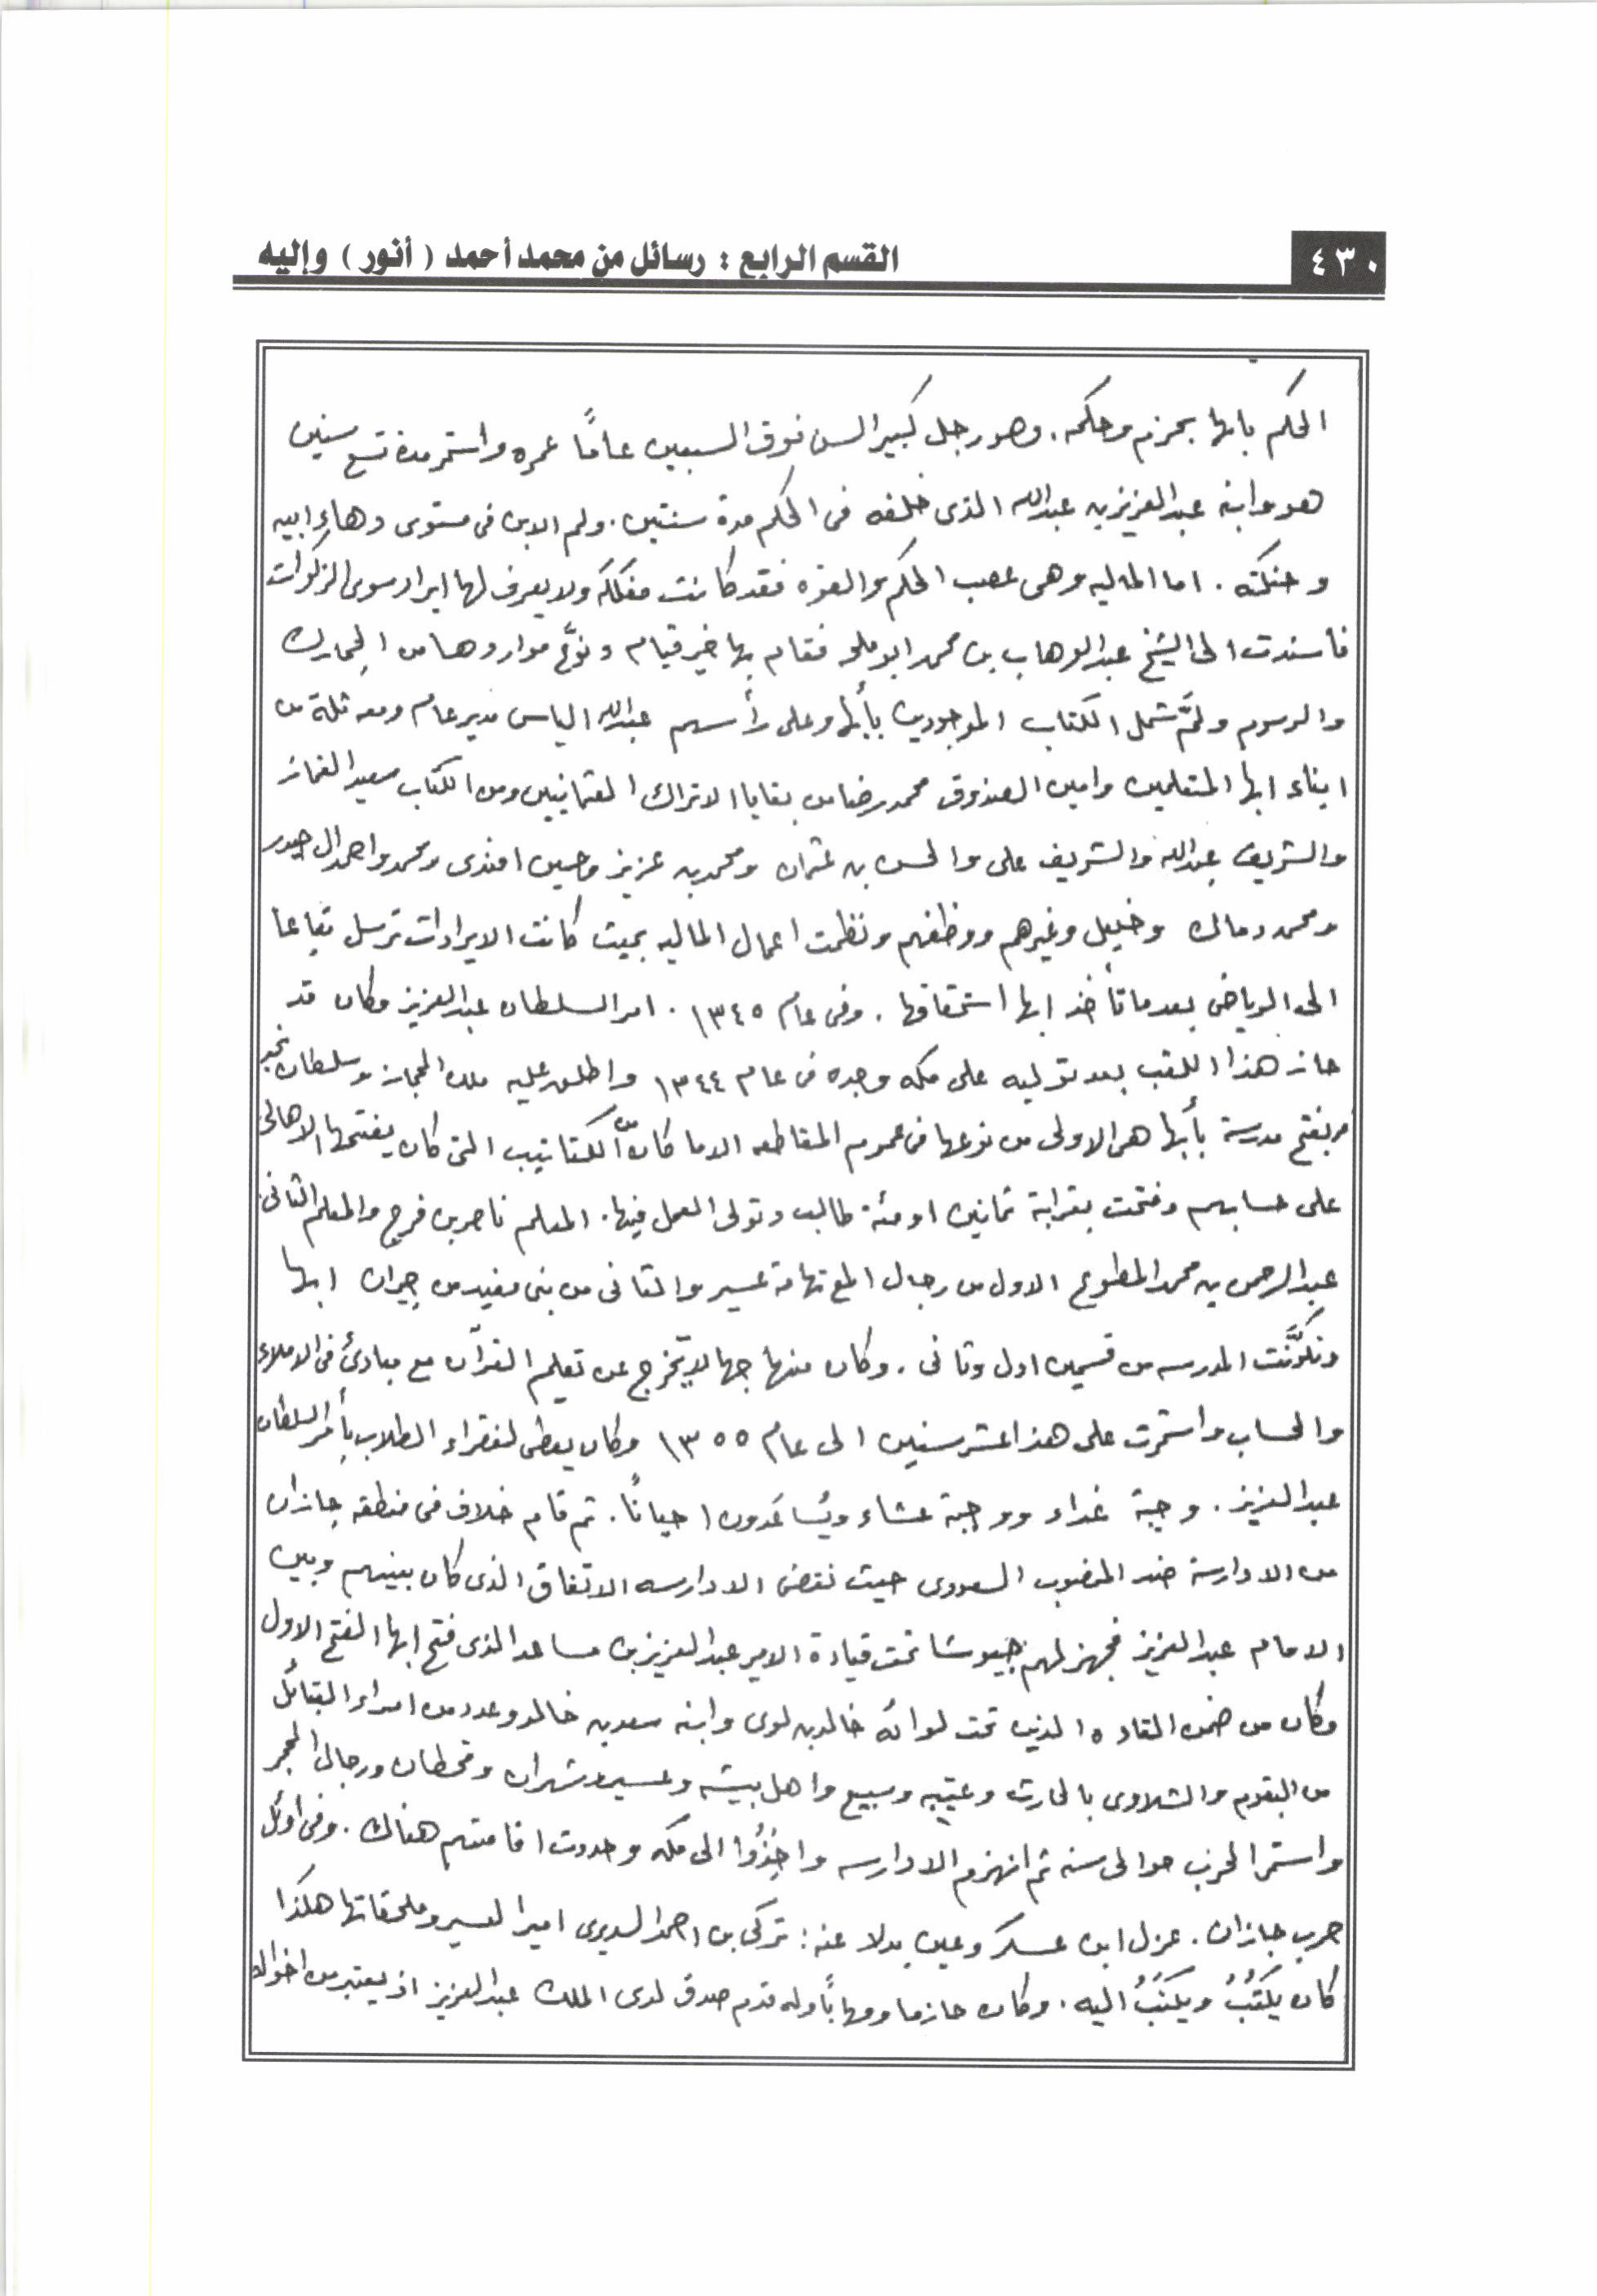 ٤٣٠
القسم الرابع : رسائل من محمد أحمد ( أنور ) وإليه
الحكم بابها بحزم وحكمه. وهو رجل كبير السن فوق السبعين عامًا عمره واستمر مدة تسع سنين
هو وابنه عبدالعزيز بن عبدالله الذى خلفه فى الحكم مدة سنتين. ولم الابن فى مستوى دهاء ابيه
وحنكته. اما الماليه وهى عصب الحكم والقوه فقد كانت مفككه ولا يعرف لها ايراد سوى الزكوات
فأسندت الى الشيخ عبدالوهاب بن محمد ابو ملحه فقام بها خير قيام ونوَّع مواردها من الجمارك
والرسوم ولمَّ شمل الكتاب الموجودين بأبها وعلى رأسهم عبدالله الياس مدير عام ومعه ثلة من
ابناء ابها المتعلمين وامين الصندوق محمد رضا من بقايا الاتراك العثمانيين ومن الكتاب سعيد الغماز
والشريف عبدالله والشريف على والحسن بن عثمان ومحمد بن عزيز وحسين افندى ومحمد واحمد ال حيدر
ومحمد دمان وخليل وغيرهم ووظفهم ونظمت اعمال الماليه بحيث كانت الايرادات ترسل تباعا
الى الرياض بعد ما تأخذ ابها استحقاقها. وفى عام ١٣٤٥. امر السلطان عبدالعزيز وكان قد
حاز هذا اللقب بعد توليه على مكه وجده فى عام ١٣٤٤ واطلق عليه ملك الحجاز وسلطان نجد
مر بفتح مدرسة بأبها هى الاولى من نوعها فى عموم المقاطعه الا ما كان من الكتاتيب التى كان يفتحها الاهالى
على حسابهم وفتحت بقرابة ثمانين او مئة طالب وتولى العمل فيها. المعلم ناصر بن فرج والمعلم الثانى
عبدالرحمن بن محمد المطوع الاول من رجال المع تهامة عسير والثانى من بنى مفيد من جيران ابها
وتكوَّنت المدرسه من قسمين اول وثانى. وكان منهاجها لا يخرج عن تعليم القرآن مع مبادئ فى الاملاء
والحساب واستمرت على هذا عشر سنين الى عام ١٣٥٥ وكان يعطى لفقراء الطلاب بأمر السلطان
عبدالعزيز. وجبة غداء ووجبة عشاء ويُساعَدون احيانًا. ثم قام خلاف فى منطقه جازان
من الادارسة ضد المندوب السعودى حيث نقض الادارسه الاتفاق الذى كان بينهم وبين
الامام عبدالعزيز فجهز لهم جيوشا تحت قيادة الامير عبدالعزيز بن مساعد الذى فتح ابها الفتح الاول
وكان من ضمن القاده الذين تحت لوائه خالد بن لوى وابنه سعد بن خالد وعدد من امراء القبائل
من البقوم والشلاوى بالحارث وعتيبه وسبيع واهل بيشه وعسير وشهران وقحطان ورجال الحجر
واستمر الحرب حوالى سنه ثم انهزم الادارسه واخِذُوا الى مكه وحددت اقامتهم هناك. وفى أوئل
حرب جازان. عزل ابن عسكر وعين بدلا عنه: تركى بن احمد السديرى اميرا لعسير وملحقاتها هكذا
كان يَكتُبُ ويُكتَبُ اليه. وكان حازما ومهابًا وله قدم صدق لدى الملك عبدالعزيز اذ يعتبر من اخواله